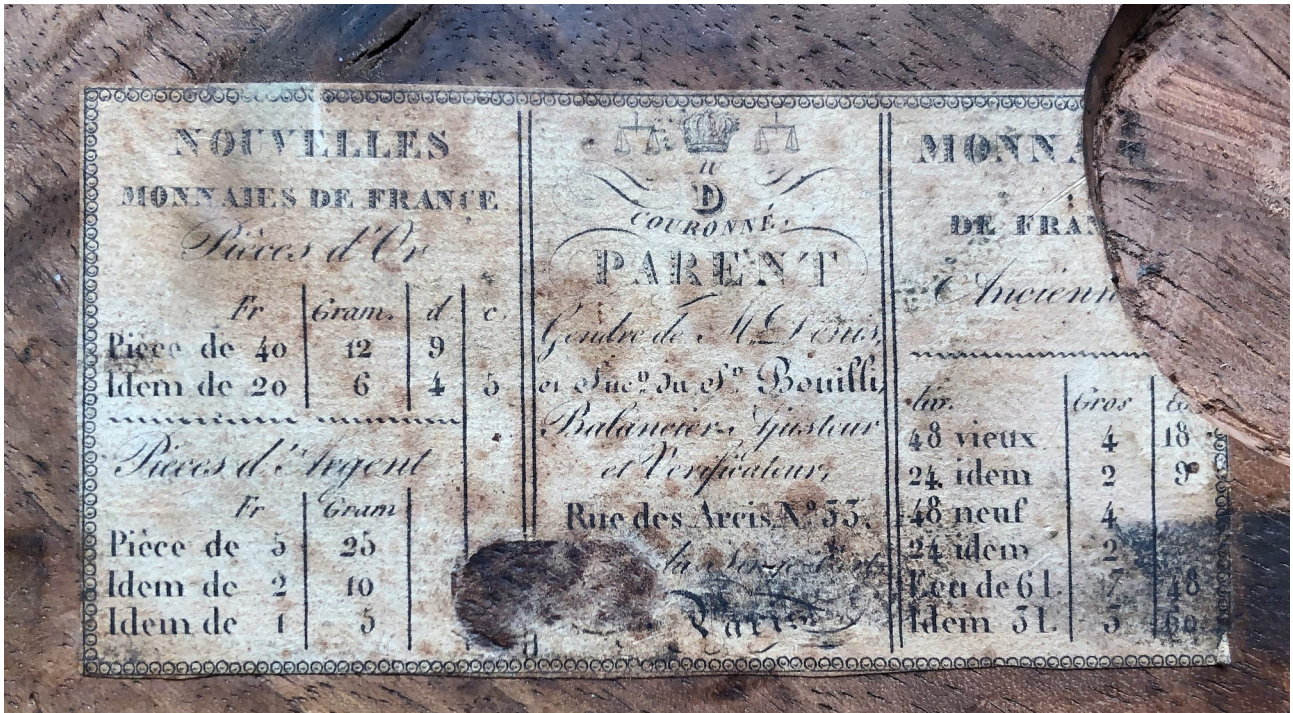 NOUVELLES
MONNAIES DE FRANCE
Pièces d'Or
Fr Gram. d c.
Pièce de 40 12 9
Idem de 20 6 4 5
Pièces d'Argent
Fr Gram
Pièce de 5 25
Idem de 2 10
Idem de 1 5
D
COURONNÉ,
PARENT
Gendre de M.
et Sucr. du Sr. Bouilli,
Balancier Ajusteur
et Verificateur,
Rue des Arcis, No 33.
Paris
DE
Liv. Gros
48 vieux 4 18
24 idem 2 9
48 neuf 4
24 idem 2
Ecu de 6 L. 7 48
Idem 3 L 3 60